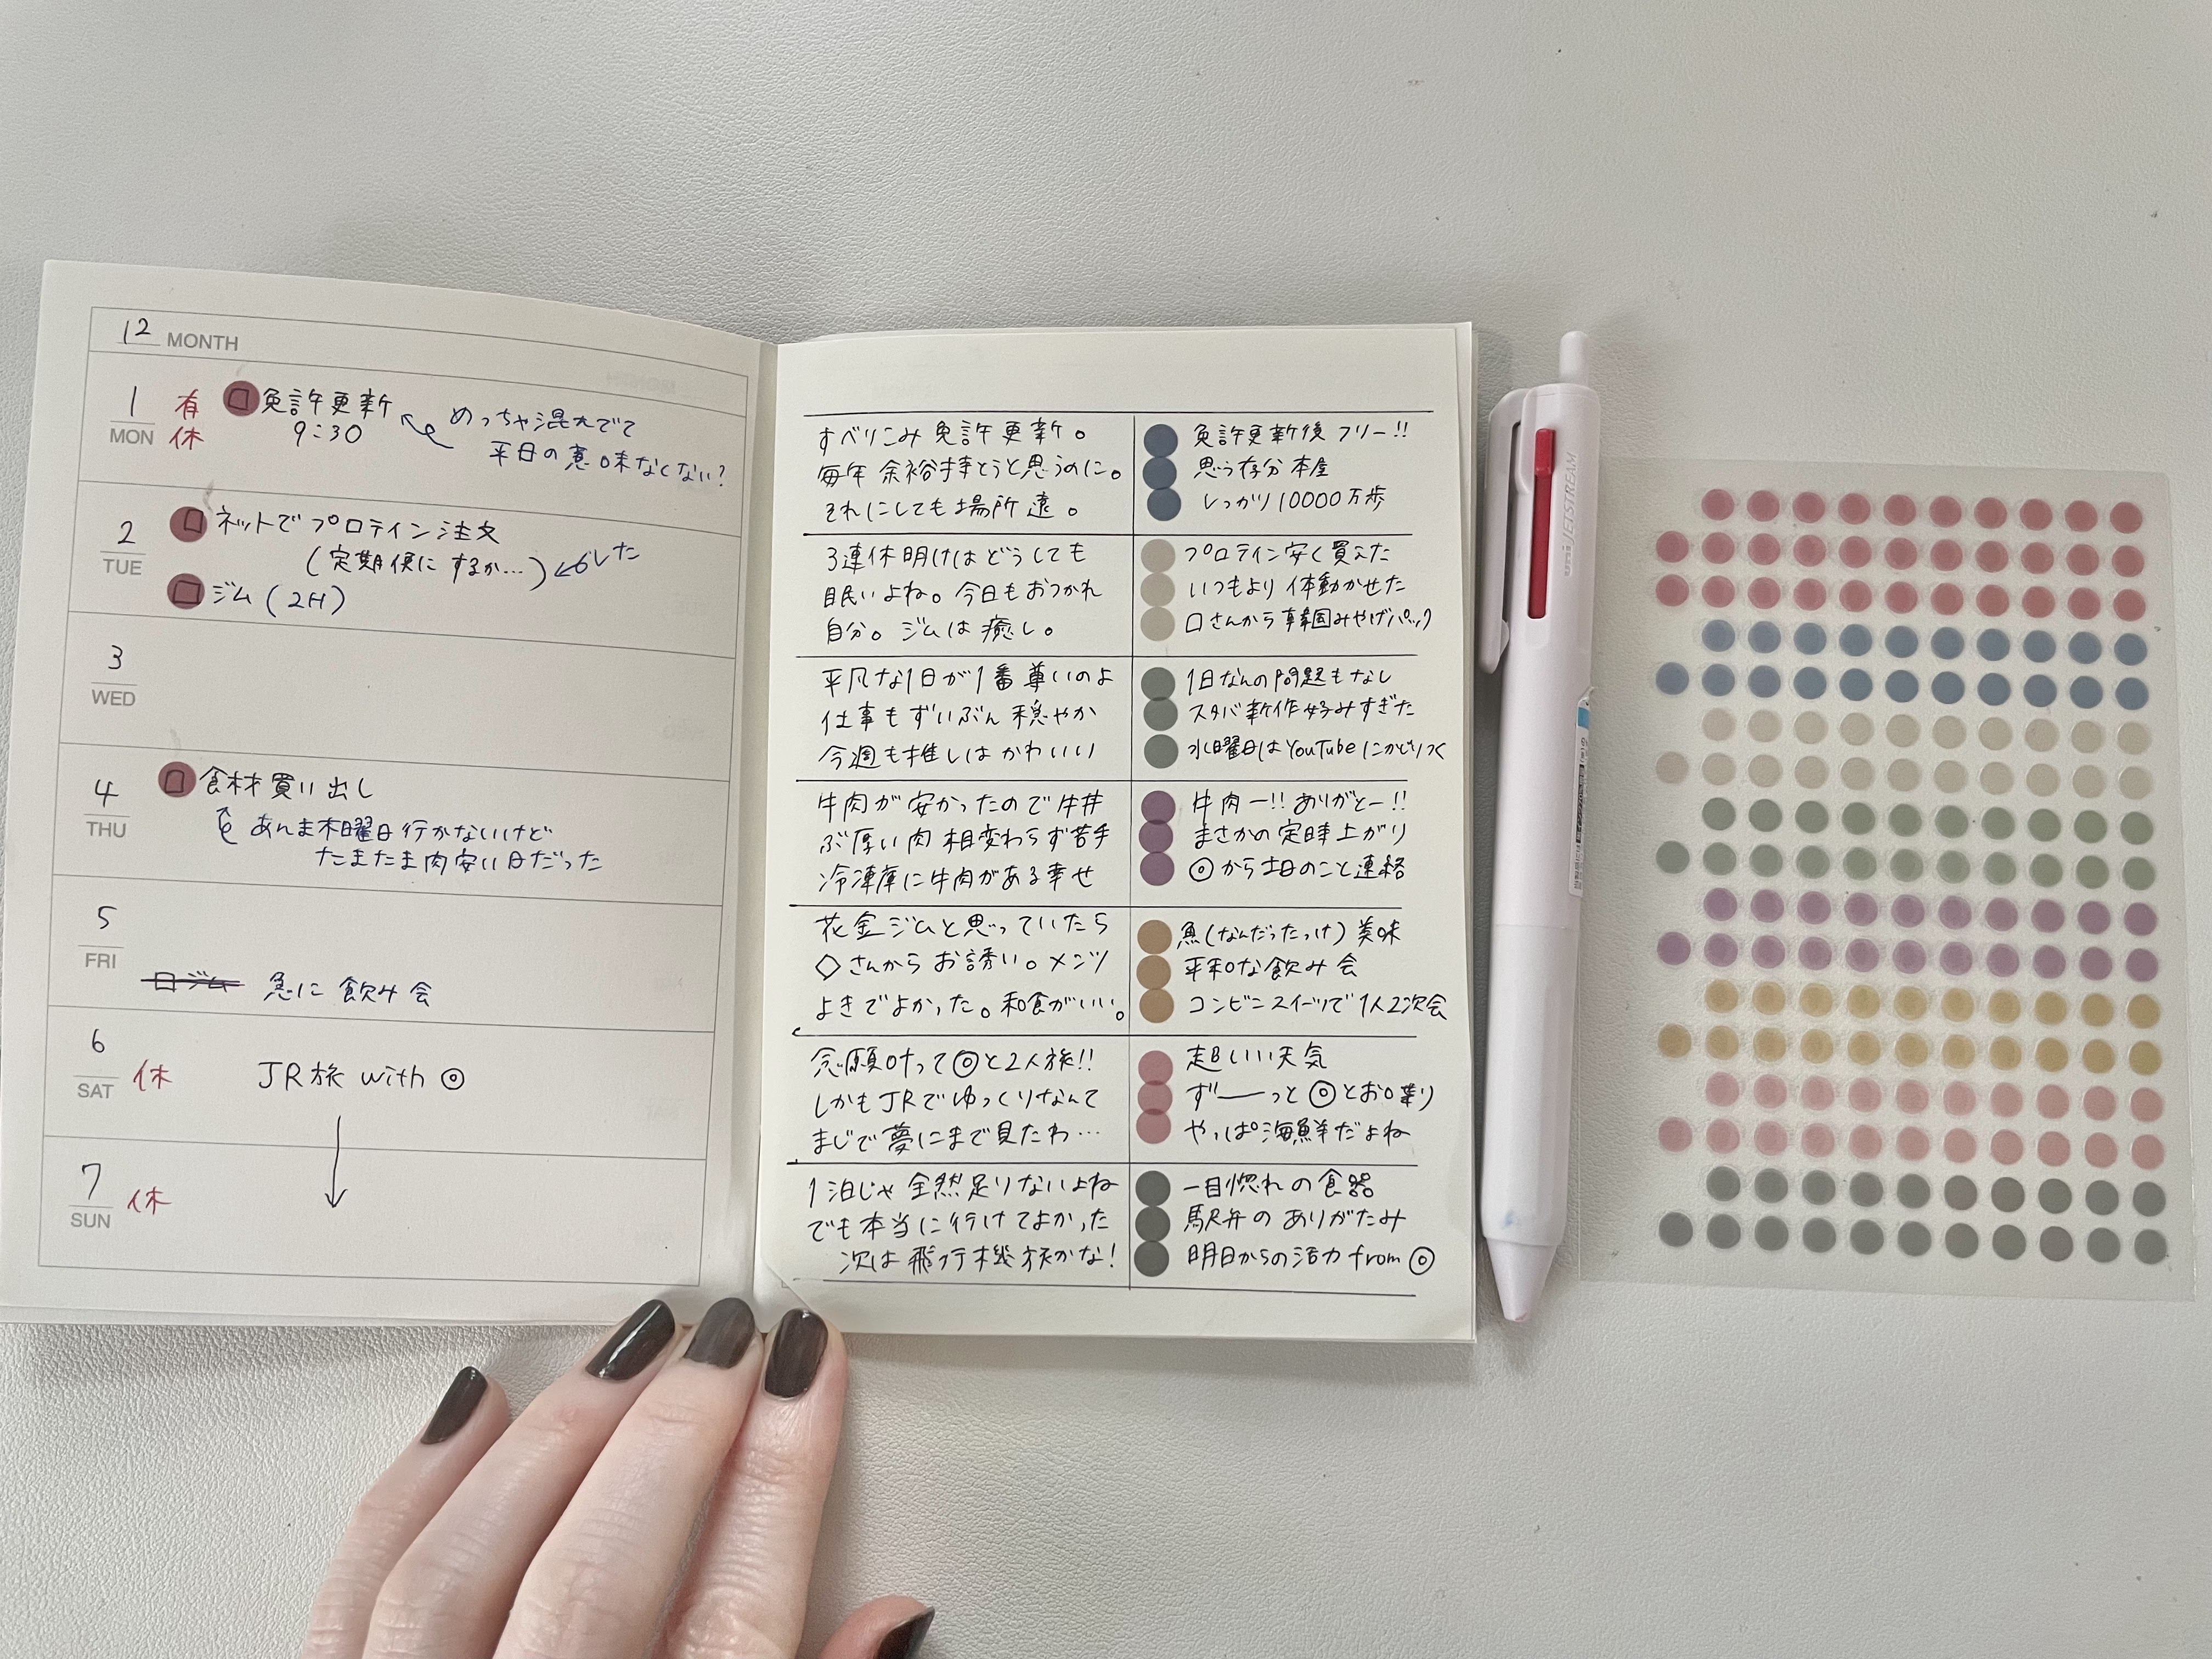 12 MONTH
1 MON 有休 □免許更新
9:30
めっちゃ混んでて
平日の意味なくない?
2 TUE □ネットでプロテイン注文
(定期便にするか…)←した
□ジム(2H)
3 WED
4 THU □食材買い出し
あんま木曜日行かないけど
たまたま肉安い日だった
5 FRI
□ジム 急に飲み会
6 SAT 休 JR旅 with ◎
7 SUN 休
すべりこみ免許更新。
毎年余裕持とうと思うのに。
それにしても場所遠。
免許更新後フリー!!
思う存分本屋
しっかり10000万歩
3連休明けはどうしても
眠いよね。今日もおつかれ
自分。ジムは癒し。
プロテイン安く買えた
いつもより体動かせた
口さんから韓国みやげパック
平凡な1日が1番尊いのよ
仕事もずいぶん穏やか
今週も推しはかわいい
1日なんの問題もなし
スタバ新作好みすぎた
水曜日はYouTubeにかじりつく
牛肉が安かったので牛丼
ぶ厚い肉相変わらず苦手
冷凍庫に牛肉がある幸せ
牛肉ー!!ありがとー!!
まさかの定時上がり
◎から土日のこと連絡
花金ジムと思っていたら
◇さんからお誘い。メンツ
よきでよかった。和食がいい。
魚(なんだったっけ)美味
平和な飲み会
コンビニスイーツで1人2次会
念願叶って◎と2人旅!!
しかもJRでゆっくりなんて
まじで夢にまで見たわ…
超いい天気
ず――っと◎とお喋り
やっぱ海鮮だよね
1泊じゃ全然足りないよね
でも本当に行けてよかった
次は飛行機旅かな!
一目惚れの食器
駅弁のありがたみ
明日からの活力 from ◎
uni JETSTREAM